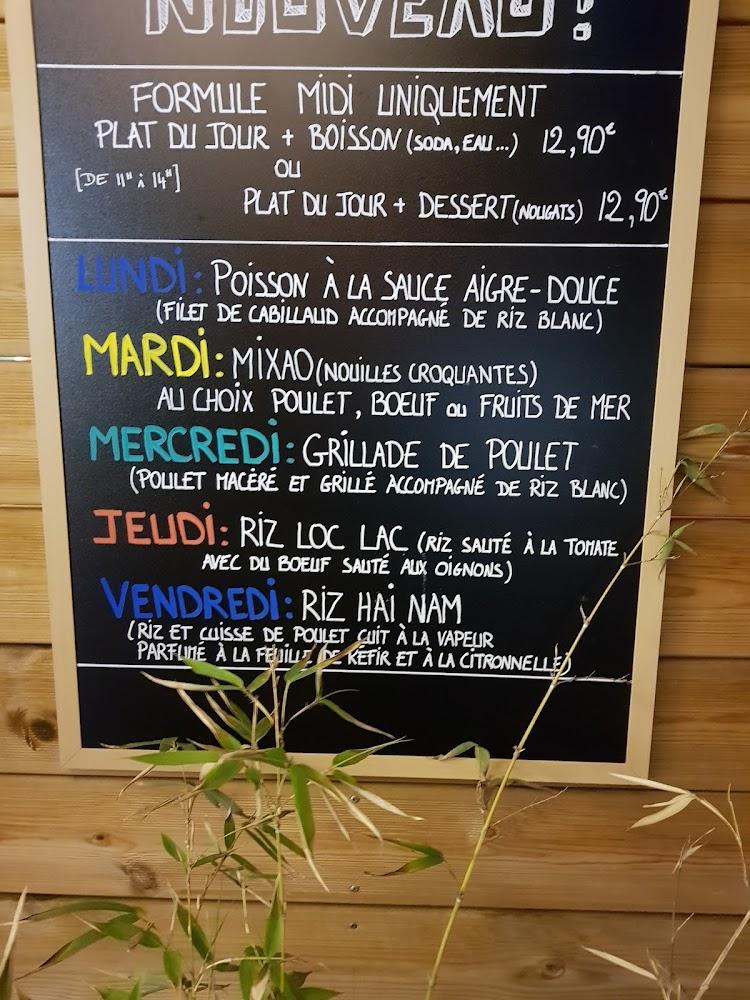 NOUVEAU!
FORMULE MIDI UNIQUEMENT
PLAT DU JOUR + BOISSON (SODA, EAU...) 12,90€
OU
[DE 11H à 14H]
PLAT DU JOUR + DESSERT (NOUGATS) 12,90€
LUNDI: POISSON À LA SAUCE AIGRE-DOUCE
(FILET DE CABILLAUD ACCOMPAGNÉ DE RIZ BLANC)
MARDI: MIXAO (NOUILLES CROQUANTES)
AU CHOIX POULET, BOEUF ou FRUITS DE MER
MERCREDI: GRILLADE DE POULET
(POULET MACÉRÉ ET GRILLÉ ACCOMPAGNÉ DE RIZ BLANC)
JEUDI: RIZ LOC LAC (RIZ SAUTÉ À LA TOMATE
AVEC DU BOEUF SAUTÉ AUX OIGNONS)
VENDREDI: RIZ HAI NAM
(RIZ ET CUISSE DE POULET CUIT À LA VAPEUR
PARFUMÉ À LA FEUILLE DE KEFIR ET À LA CITRONNELLE)